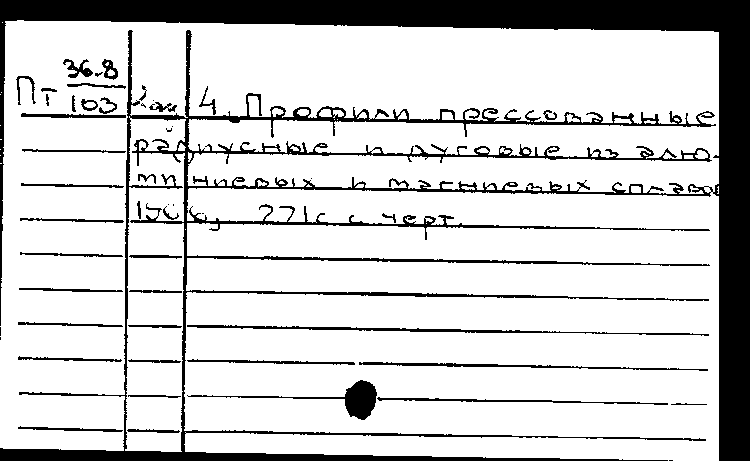 36.8
Пт 103 4. Профили прессованные
радиусные и дуговые из алю-
миниевых и магниевых сплавов
271с с черт.